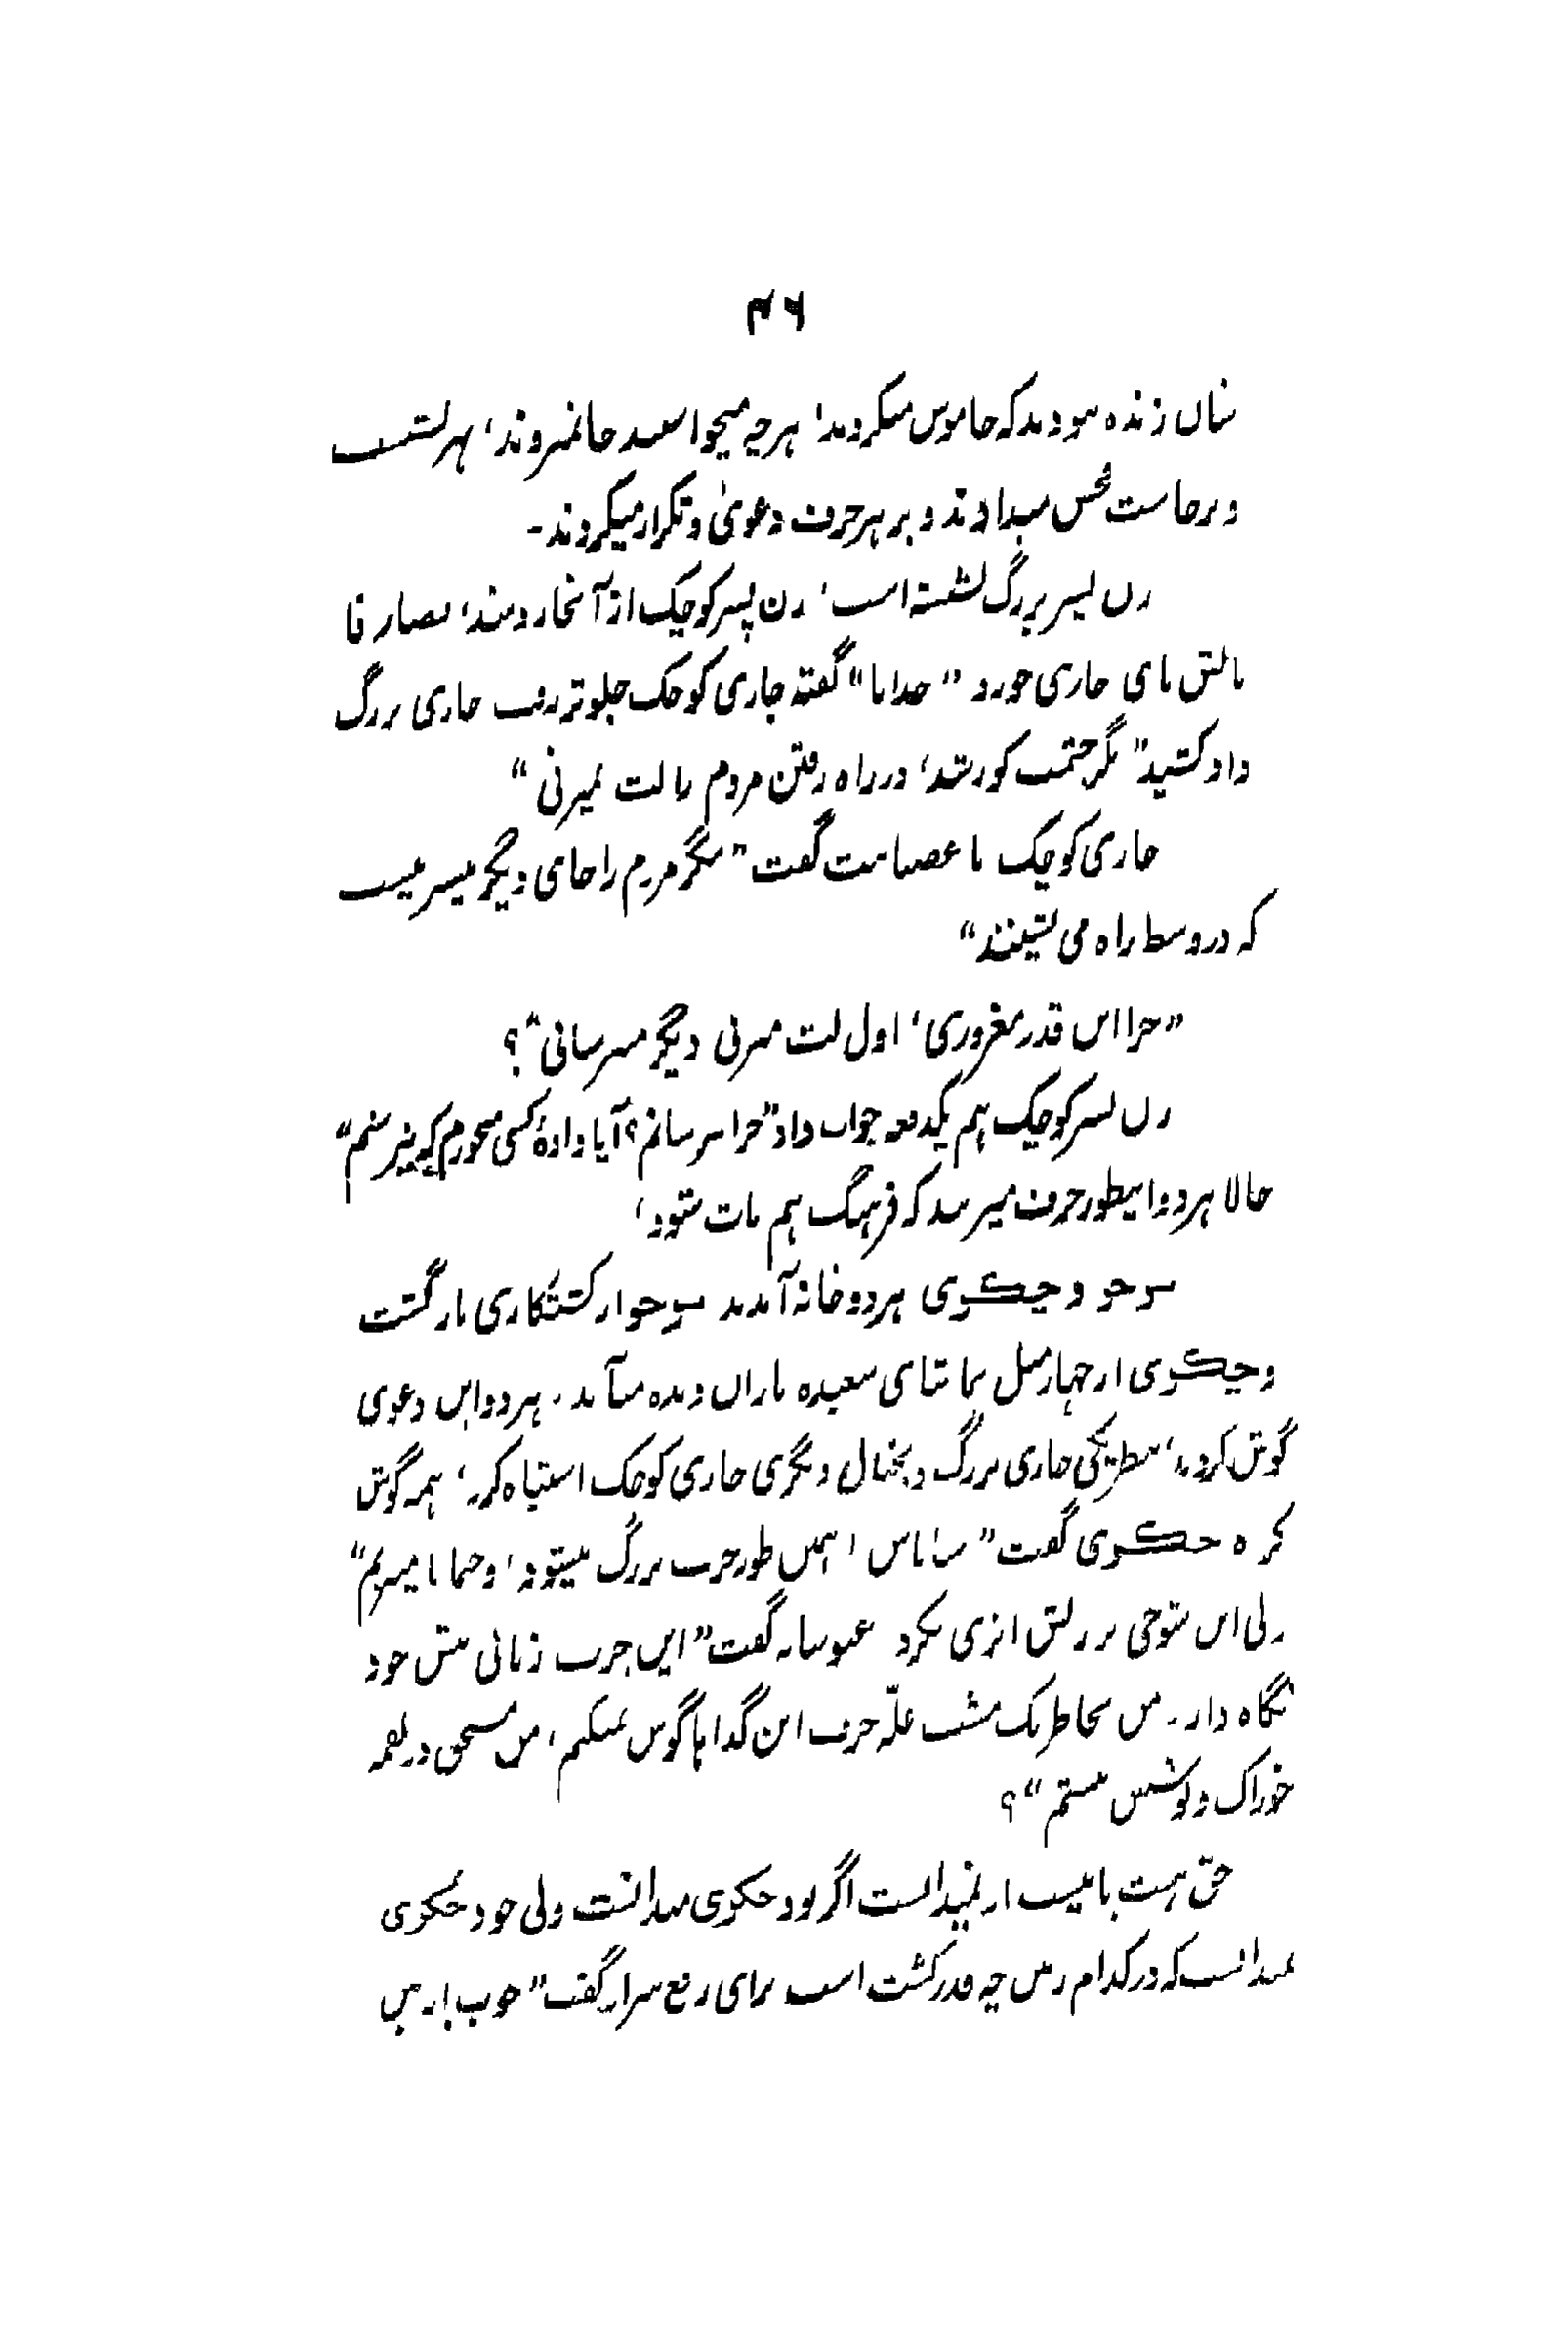 ۴۶
شان زنده بودند که خاموش میکردند، هرچه میخواستند جا نمیروند، بهر نشست
و برخاست فحش میدادند و بر هر حرف دعویٰ و تکرار میکردند۔
زن پسر بزرگ نشسته است، زن پسر کوچک از آنجا رد میشد، تصادفا
بالش پای جاری خورد "خدایا" گفته جاری کوچک جلوتر رفت جاری بزرگ
داد کشید "مگر چشمت کور شد، در راه رفتن مردم را لت میزنی"
جاری کوچک با عصبانیت گفت "مگر مردم را جای دیگر میسر نیست
که در وسط راه می نشینند"
"چرا این قدر مغروری، اول لت میزنی دیگر میترسانی"؟
زن پسر کوچک هم یکدفعه جواب داد "چرا نترسانم؟ آیا دادهٔ کسی میخورم که بترسم"
حالا هر دو اینطور حرف میزنند که فرهنگ هم مات شود،
سوجو و چیکوی هر دو خانه آمدند سوجو از کشتکاری بازگشت
و چیکوی از چهار میل تماشای سعبده بازان دیده میآمد۔ هر دو این دعوی
گوش کردند، بطریکی جاری بزرگ و بخیال دیگری جاری کوچک اشتباه کرد، همه گوش
کرده چیکوی گفت همین طور حرب بزرگ میشود، و حما با میبریم"
ولی این شوخی بر زنش اثری نکرد عبوسانه گفت "این چرب زبانی پیش خود
نگاه دار۔ من بخاطر یک مشت غلّه حرف این گداها گوش نمیکنم، من مستحق در لقمه
خوراک و پوشش نیستم"؟
حقّ هست یا نیست او نمیدانست اگر بود چکوی میدانست ولی خود چکوی
نمیدانست که در کدام زمین چه قدر کشت است برای رفع گفت "خوب